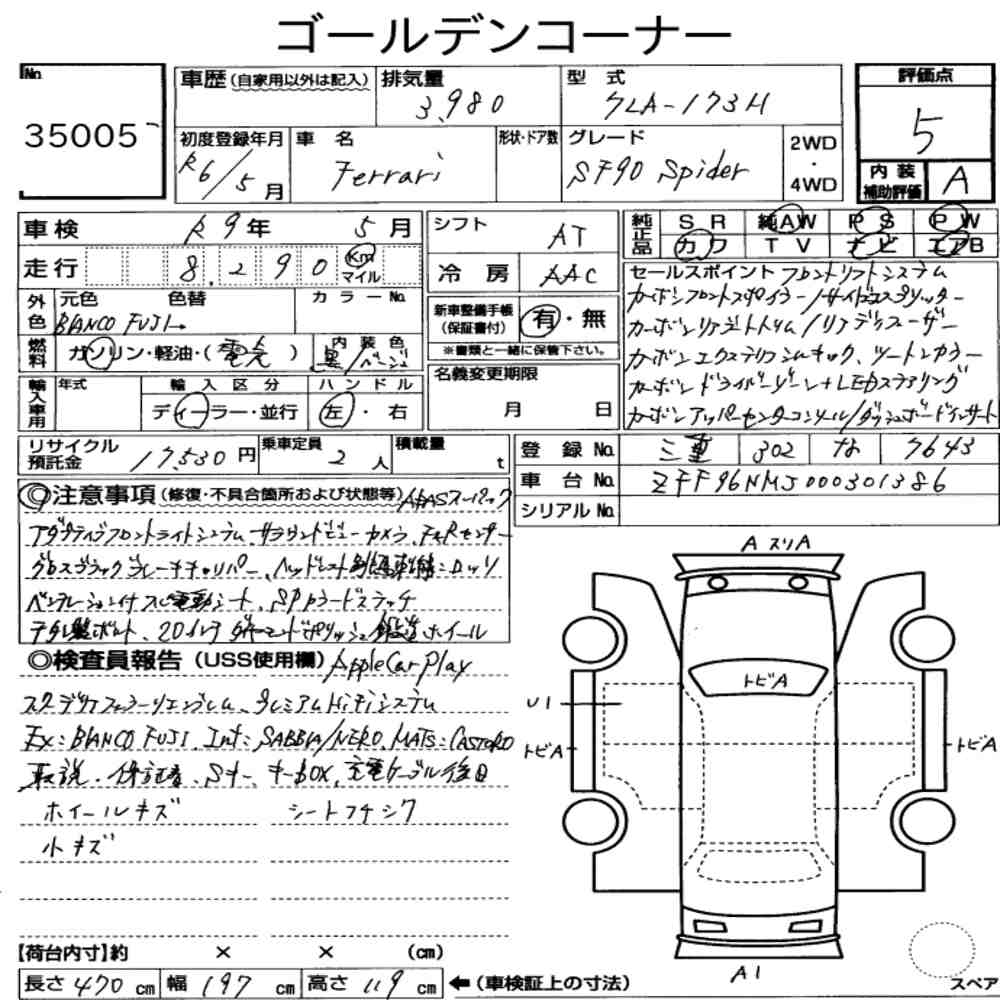 ゴールデンコーナー
No. 35005
車歴 (自家用以外は記入) 排気量 3,980 型式 7LA-173H
評価点 5
初度登録年月 R6/5月 車名 Ferrari 形状・ドア数 グレード SF90 Spider 2WD・4WD
内装補助評価 A
車検 R9年 5月 シフト AT
走行 8,290 Km マイル 冷房 AAC
純正品 SR 純AW PS PW
カワ TV ナビ エアB
外色 元色 色替 カラーNo. BIANCO FUJI
新車整備手帳 (保証書付) 有・無
※書類と一緒に保管下さい。
燃料 ガソリン・軽油・(電気) 内装色 黒/ベージュ
輸入車用 年式 輸入区分 ディーラー・並行 ハンドル 左・右
名義変更期限 月 日
セールスポイント フロントリフトシステム
カーボンフロントスポイラー/サイドスプリッター
カーボンリアボトムトリム/リアディフューザー
カーボンエクステリアシルキック、ツートンカラー
カーボンドライバーゾーン+LEDステアリング
カーボンアッパーセンターコンソール/ダッシュボードインサート
リサイクル預託金 17,530円 乗車定員 2人 積載量 t
登録No. 三重 302 な 7643
車台No. ZFF96NMJ000301386
シリアルNo.
◎注意事項 (修復・不具合箇所および状態等)
アダプティブフロントライトシステム、サラウンドビューカメラ、F&Rセンサー
グロスブラックブレーキキャリパー、ヘッドレスト跳馬刺繍
ベンチレーション付 電動シート、
チタン製ボルト、20インチダイヤモンドポリッシュ鍛造ホイール
◎検査員報告 (USS使用欄) Apple Car Play
スクーデリアフェラーリエンブレム、プレミアムHiFiシステム
Ex:BIANCO FUJI、Int:SABBIA/NERO、MATS:CASTORO
取説、保証書、Sキー、キーBOX、充電ケーブル後日
ホイールキズ シートフチシワ
小キズ
A スリA
トビA
U1
トビA
トビA
A1
【荷台内寸】約 × × (cm)
長さ 470 cm 幅 197 cm 高さ 119 cm ←(車検証上の寸法)
スペア